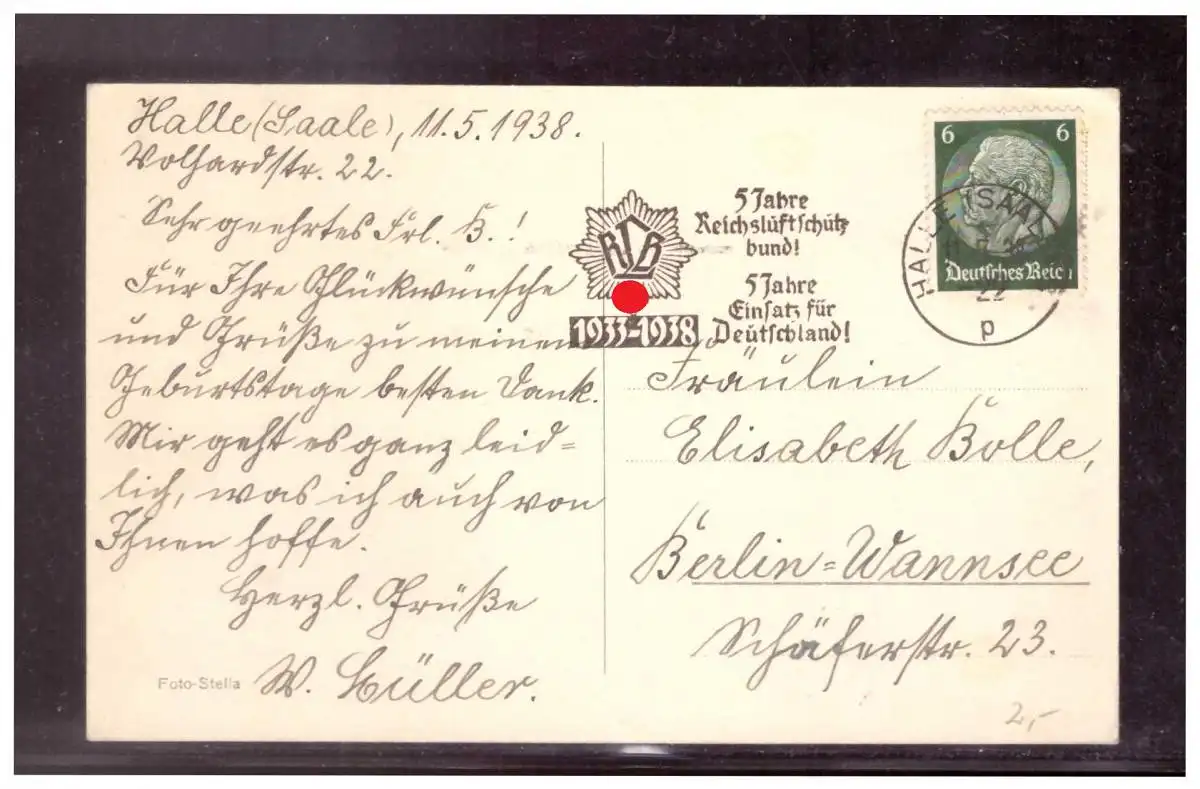 Halle (Saale), 11.5.1938.
Volhardstr. 22.
Sehr geehrtes Frl. B.!
Für Ihre Glückwünsche
und Grüße zu meinem
Geburtstage besten Dank.
Mir geht es ganz leid=
lich, was ich auch von
Ihnen hoffe.
Herzl. Grüße
W. Güller.
Foto-Stella
RLB
1933-1938
5 Jahre
Reichsluftschutz
bund!
5 Jahre
Einsatz für
Deutschland!
6 6
Deutsches Reich
HALLE (SAALE)
22
p
Fräulein
Elisabeth Bolle,
Berlin=Wannsee
Schäferstr. 23.
2,-